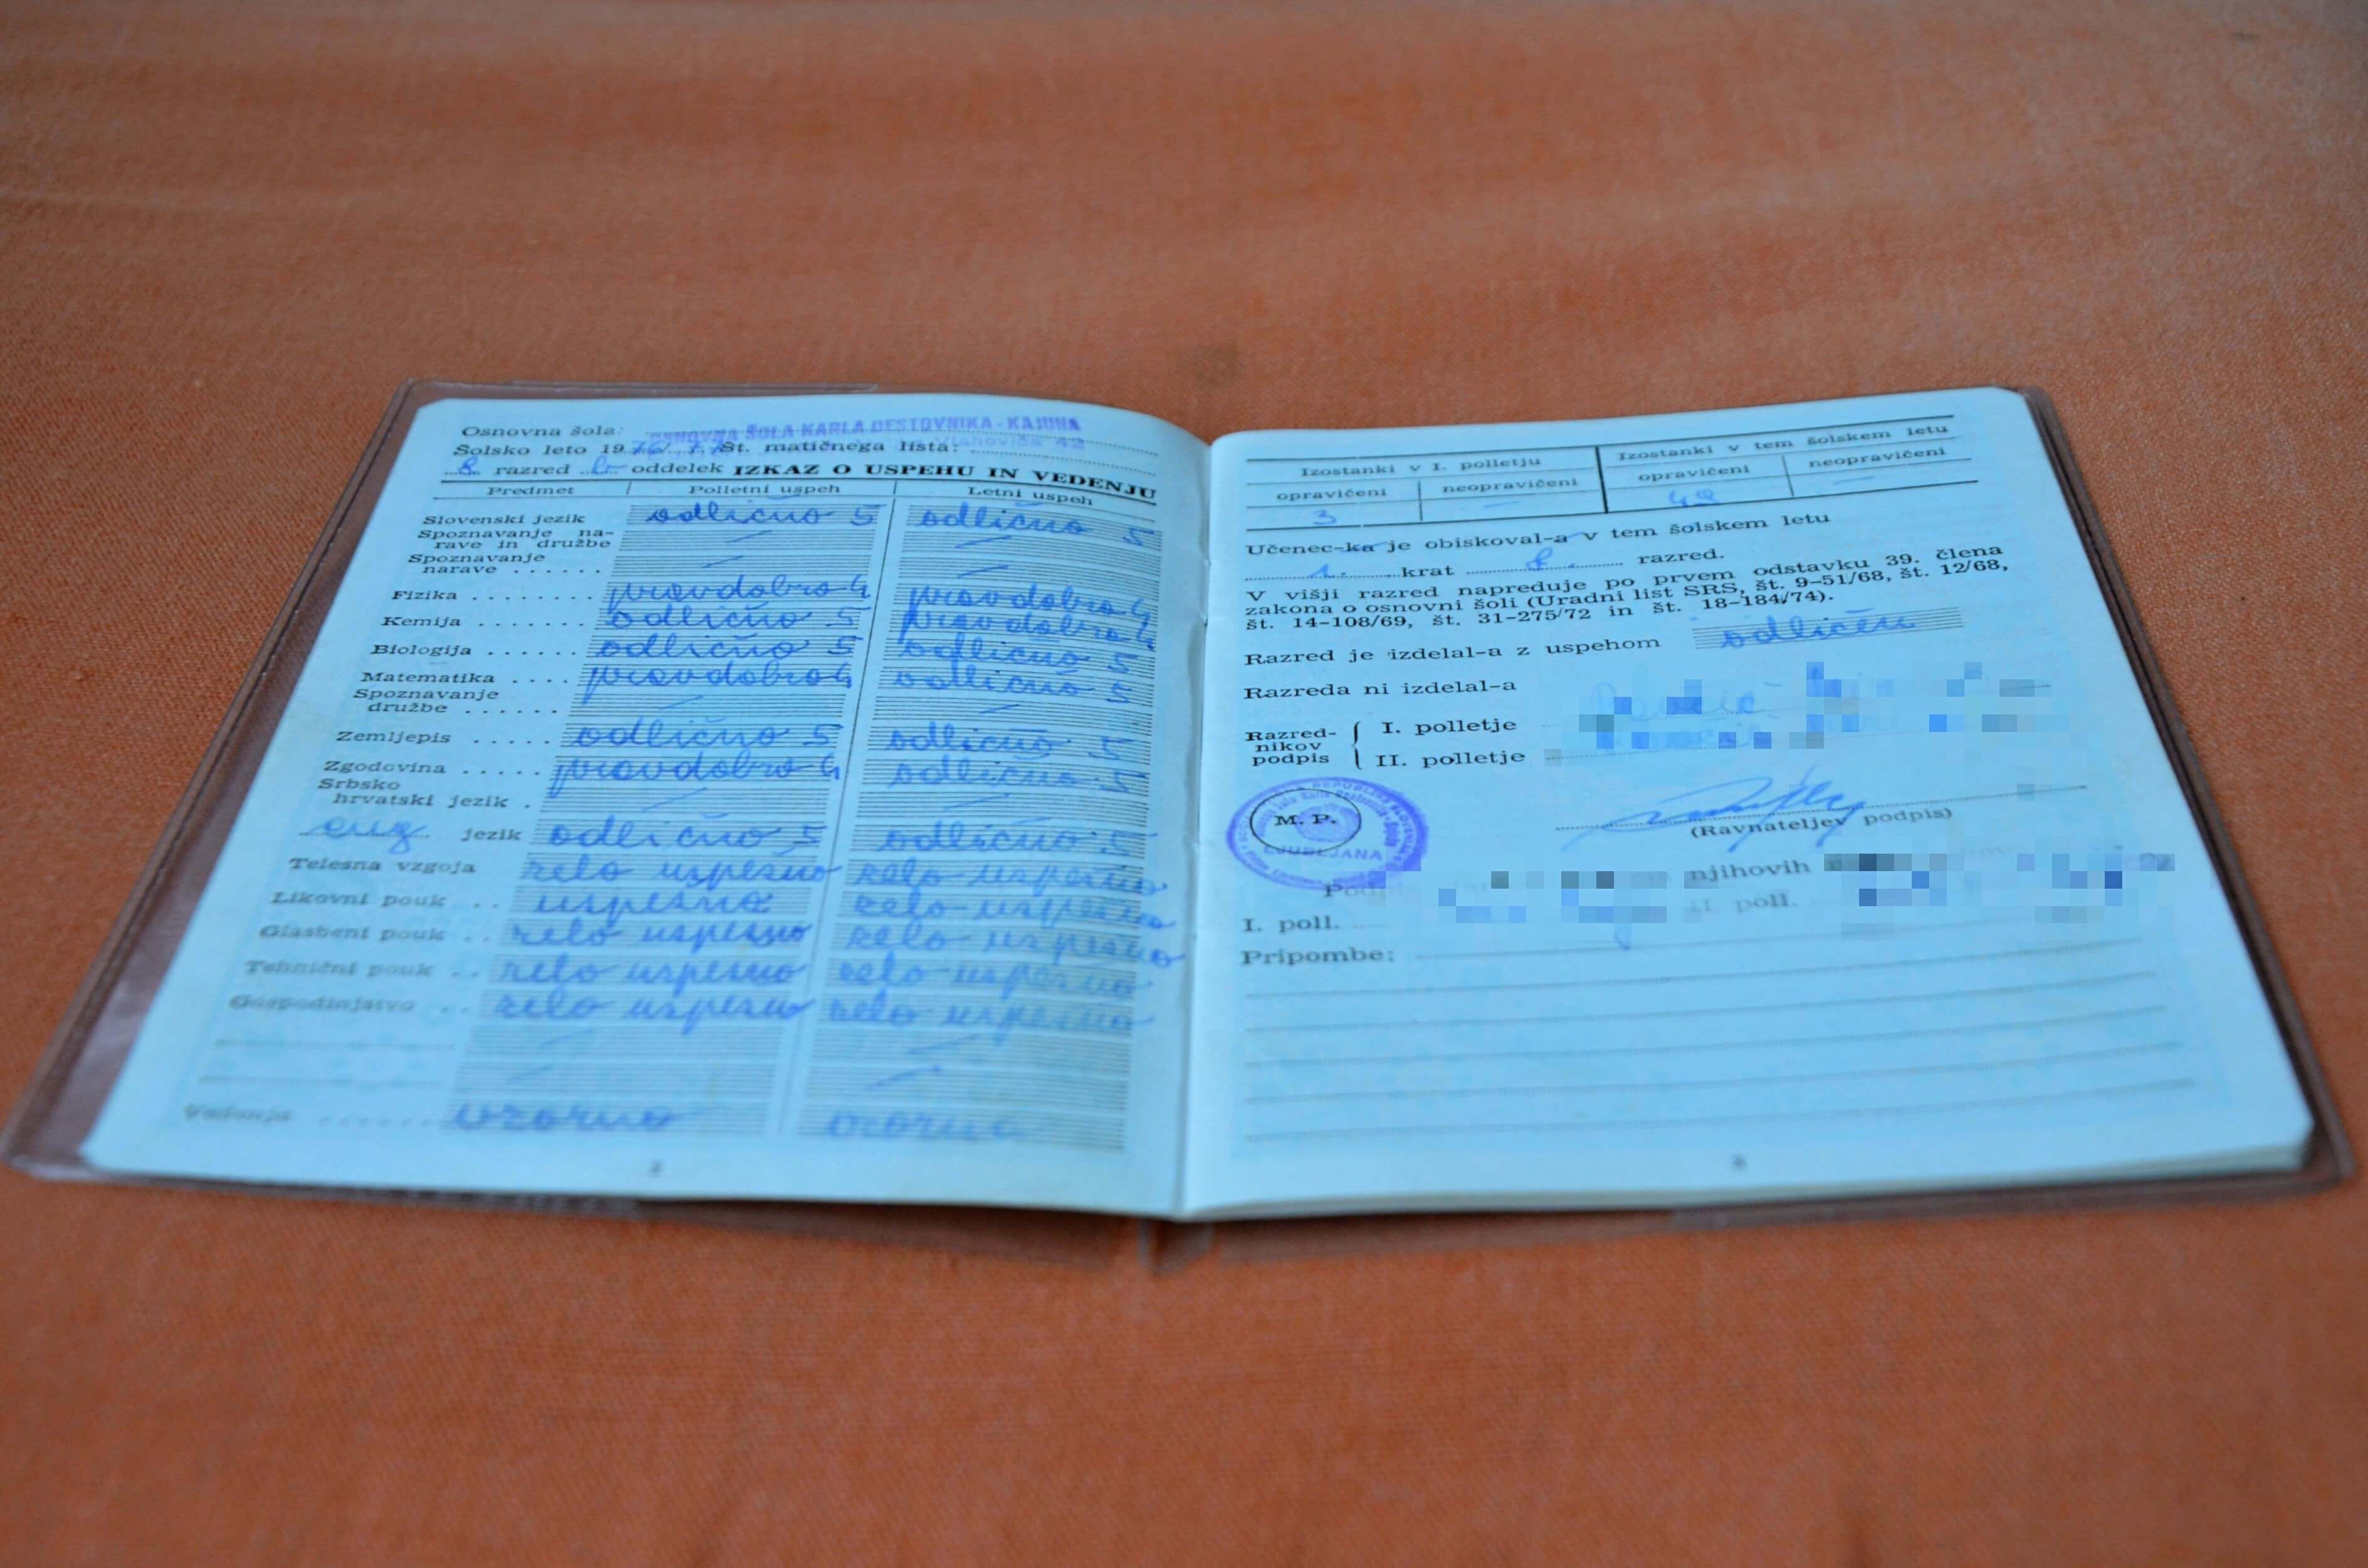 Osnovna šola: OSNOVNA ŠOLA KARLA DESTOVNIKA - KAJUHA
Šolsko leto 1976/77 Št. matičnega lista: Vlahovića 42
8. razred b oddelek IZKAZ O USPEHU IN VEDENJU
Predmet Polletni uspeh Letni uspeh
Slovenski jezik odlično 5 odlično 5
Spoznavanje na-
rave in družbe — —
Spoznavanje
narave ...... — —
Fizika ........ pravdobro 4 pravdobro 4
Kemija ....... odlično 5 pravdobro 4
Biologija ...... odlično 5 odlično 5
Matematika .... pravdobro 4 odlično 5
Spoznavanje
družbe ...... — —
Zemljepis ..... odlično 5 odlično 5
Zgodovina ..... pravdobro 4 odlično 5
Srbsko
hrvatski jezik . — —
ang. jezik odlično 5 odlično 5
Telesna vzgoja zelo uspešno zelo uspešno
Likovni pouk .. uspešno zelo uspešno
Glasbeni pouk .. zelo uspešno zelo uspešno
Tehnični pouk .. zelo uspešno zelo uspešno
Gospodinjstvo .. zelo uspešno zelo uspešno
— —
— —
Vedenje ...... vzorno vzorno
Izostanki v I. polletju Izostanki v tem šolskem letu
opravičeni neopravičeni opravičeni neopravičeni
3 — 42 —
Učenec-ka je obiskoval-a v tem šolskem letu
1. krat 8. razred.
V višji razred napreduje po prvem odstavku 39. člena
zakona o osnovni šoli (Uradni list SRS, št. 9-51/68, št. 12/68,
št. 14-108/69, št. 31-275/72 in št. 18-184/74).
Razred je izdelal-a z uspehom odličen
Razreda ni izdelal-a
Razred-
nikov
podpis
I. polletje
II. polletje
M. P.
LJUBLJANA
(Ravnateljev podpis)
njihovih
I. poll. II. poll.
Pripombe: